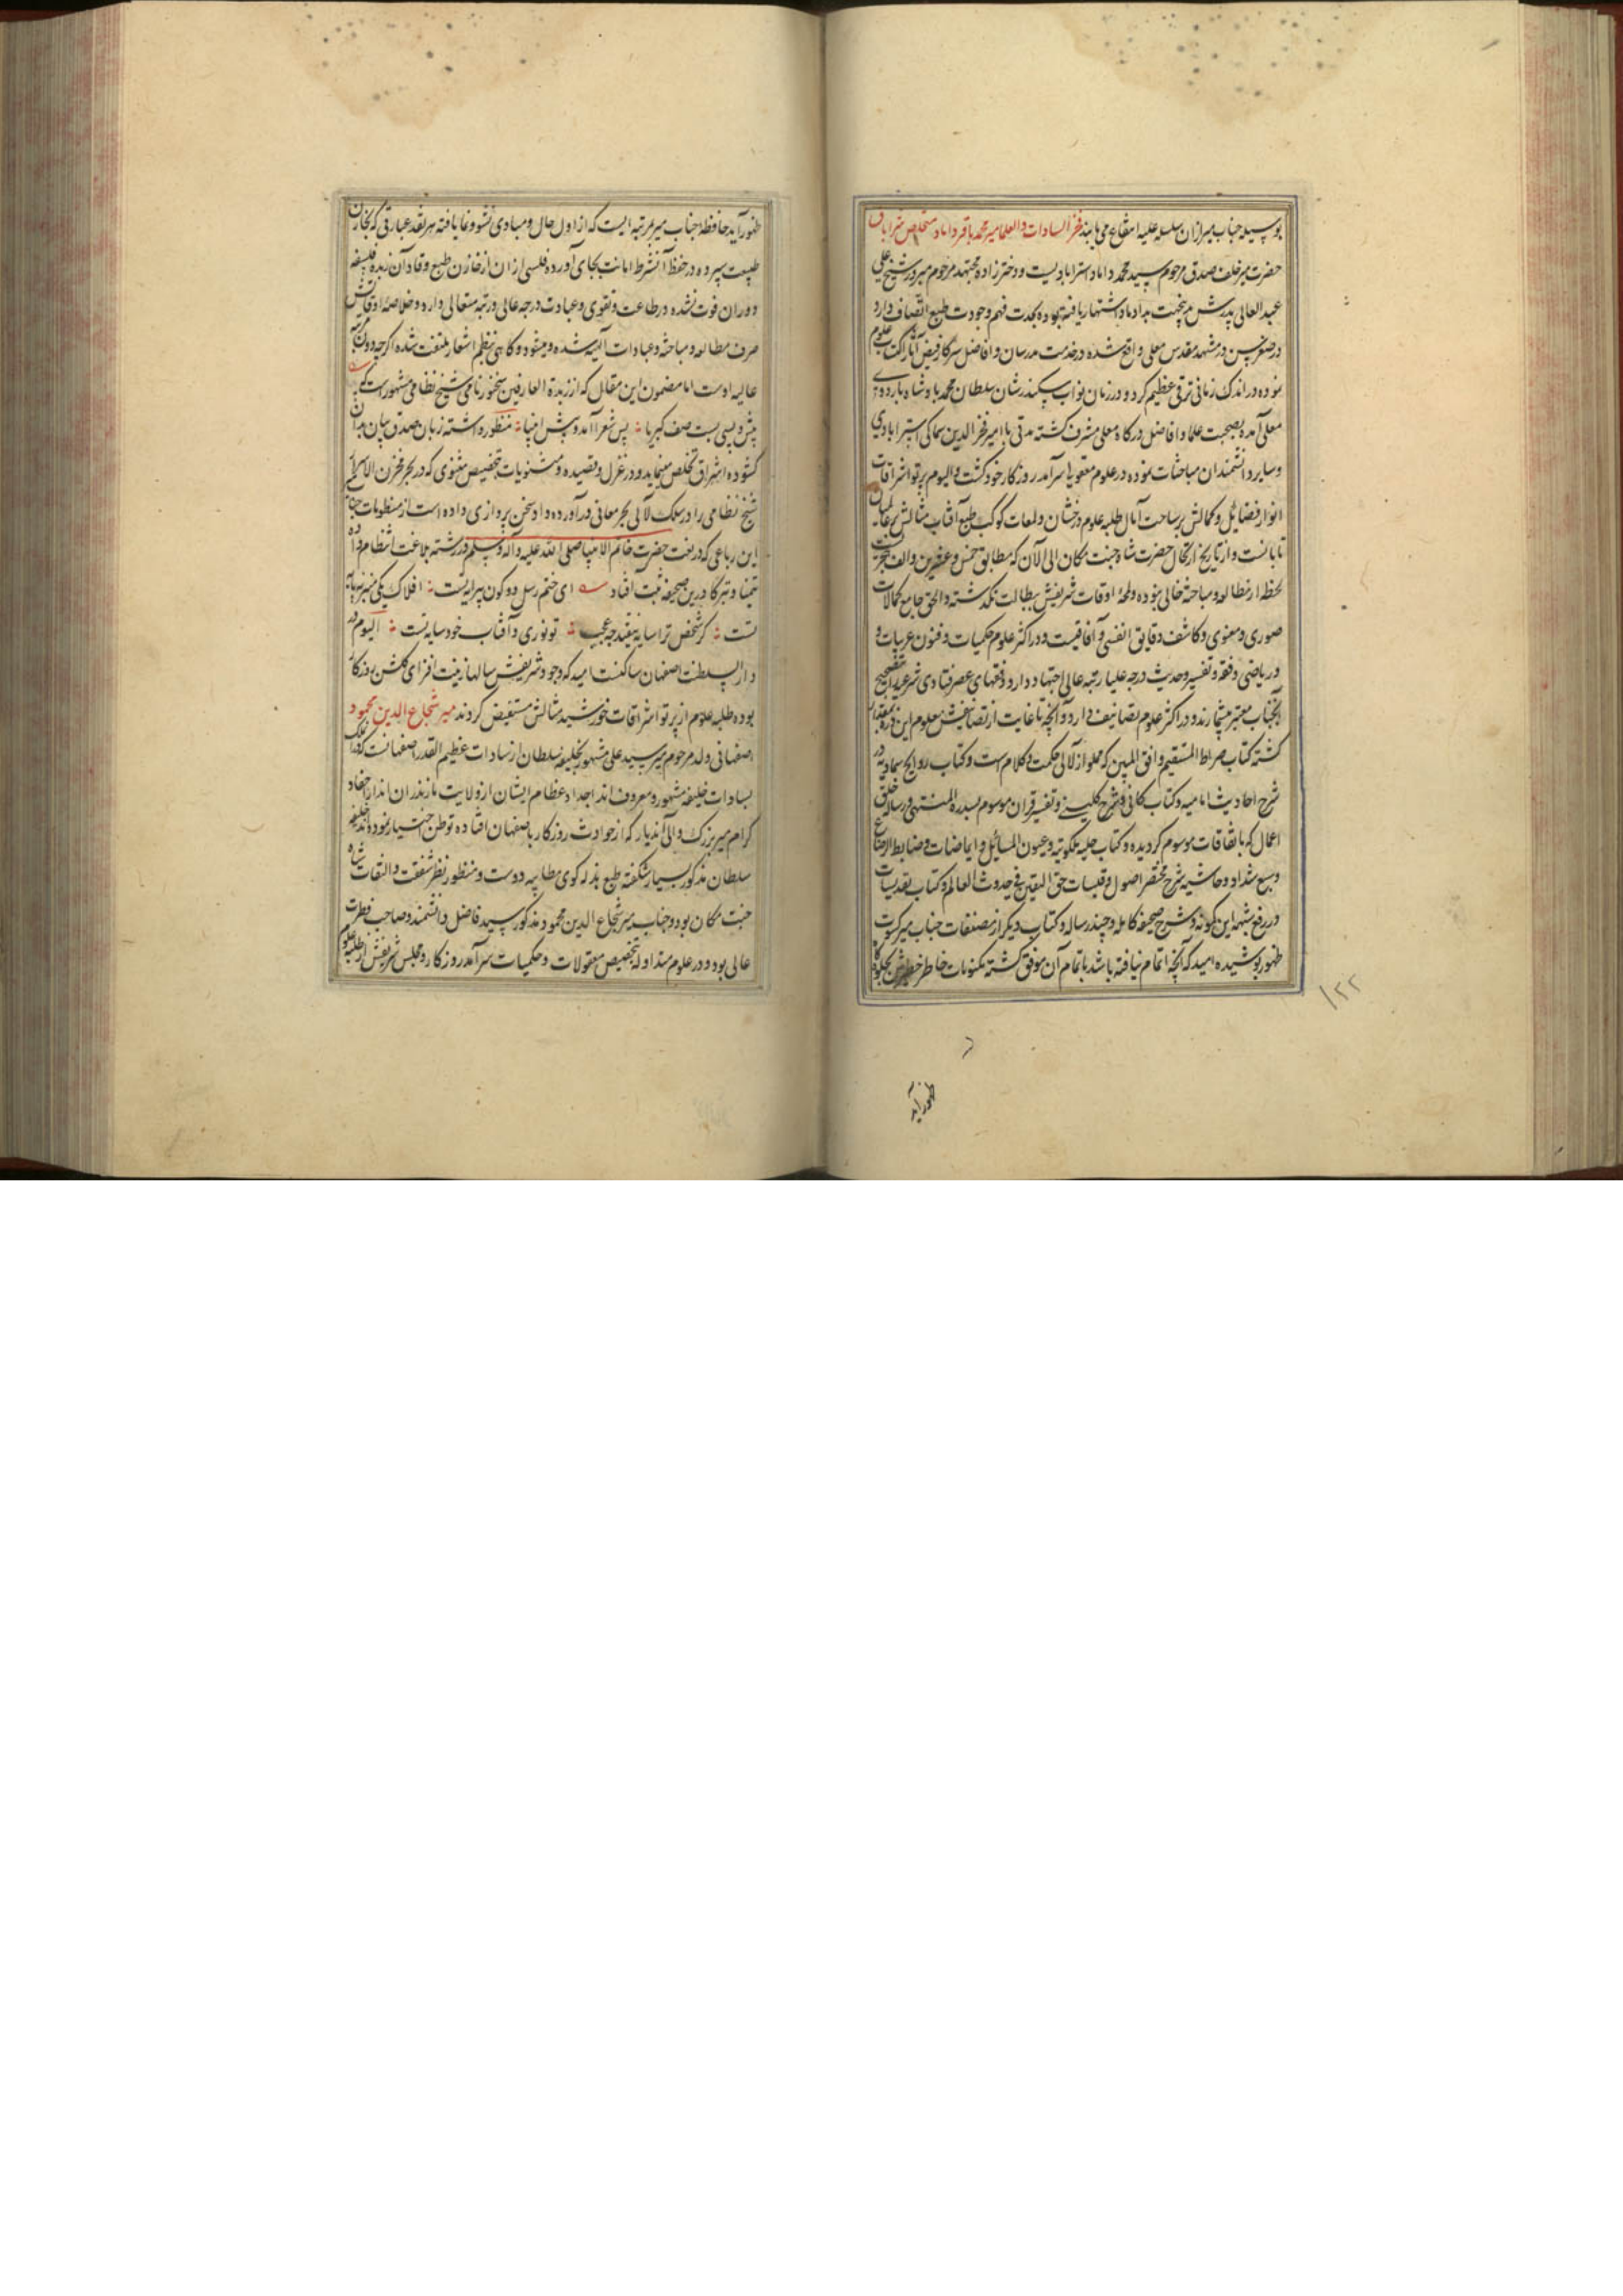 بوسیله جناب میر ازان سلسله علیه انتفاع می یابند فخر السادات والعلما میر محمد باقر داماد متخلص باشراق
حضرت میر خلف صدق مرحوم سید محمد داماد استرابادیست و دختر زاده مجتهد مرحوم مبرور شیخ علی
عبد العالی پدرش بدین جهت بداماد اشتهار یافته بوده بجدت فهم وجودت طبع اتصاف دارد
در صغر سن در مشهد مقدس معلی واقع شده در خدمت مدرسان و افاضل سرکار فیض آثار کسب علوم
نموده در اندک زمانی ترقی عظیم کرد و در زمان نواب سکندر شان سلطان محمد پادشاه باردوی
معلی آمده بصحبت علما و افاضل درکاه معلی مشرف کشته مدتی با امیر فخر الدین سماکی استرابادی
و سایر دانشمندان مباحثات نموده در علوم معقول سرآمد روزکار خود کشت والیوم پرتو اشراقات
انوار فضائل و کمالش بر ساحت آمال طلبه علوم درخشان و لمعات کوکب طبع آفتاب مثالش بر عالمیان
تابانست و از تاریخ ارتحال حضرت شاه جنت مکان الی الآن که مطابق خمس و عشرین و الف هجریست
لحظه از مطالعه و مباحثه خالی نبوده و لمحه اوقات شریفش ببطالت نکذشته والحق جامع کمالات
صوری و معنوی و کاشف دقایق انفسی و آفاقیست و در اکثر علوم حکمیات و فنون غریبات و
و ریاضی و فقه و تفسیر و حدیث درجه علیا رتبه عالی اجتهاد دارد و فقهای عصر فتاوی شرعیه را بتصحیح
آنجناب معتبر میشمارند و در اکثر علوم تصانیف دارد و آنچه تا غایت از تصانیفش معلوم این ذره بیمقدار
کشته کتاب صراط المستقیم و افق المبین که مملو از لآلی حکمت و کلام است و کتاب رواشح سماویه در
شرح احادیث امامیه و کتاب کافی و شرح کلینی و تفسیر قران موسوم بسدرة المنتهی و رساله خلق
اعمال که بایقاظات موسوم کردیده و کتاب جلیه ملکوتیه و عیون المسائل و ایماضات و ضابط الرضاع
و سبع شداد و حاشیه شرح مختصر اصول و قبسات حق الیقین فی حدوث العالم و کتاب تقدیسات
در رفع شبهه ابن کمونه و شرح صحیفه کامله و چند رساله و کتاب دیکر از مصنفات جناب میر کسوت
ظهور پوشیده امید که آنچه اتمام نیافته باشد باتمام آن موفق کشته مکنونات خاطر خطیرش بجلوه کاه
۱۲۲
ظهور آید
ظهور آید حافظه جناب میر بمرتبه ایست که از اول حال و مبادی نشو و نما یافته هر نقد عبارتی که بخازن
طبیعت سپرده در حفظ آن شرط امانت بجای آورده فلسی ازان از خازن طبع وقاد آن زبده فلسفه
دوران فوت نشده در طاعت و تقوی و عبادت درجه عالی و رتبه متعالی دارد و خلاصه اوقاتش
صرف مطالعه و مباحثه و عبادات آلهیه شده و میشود و کاهی بنظم اشعار ملتفت شده اکرچه دون مرتبه
عالیه اوست اما مضمون این مقال که از زبدة العارفین سخنور نامی شیخ نظامی مشهور است که
پیش و پسی بست صف کبریا پس شعرا آمد و پیش انبیا منظور داشته زبان صدق بیان بدان
کشوده اشراق تخلص مینماید و در غزل و قصیده و مثنویات بتخصیص مثنوی که در بحر مخزن الاسرار
شیخ نظامی را در سلک لآلی بحر معانی درآورده و داد سخن پردازی داده است از منظومات جناب
این رباعی که در نعت حضرت خاتم الانبیا صلی الله علیه وآله وسلم در رشته بلاغت انتظام داده
تیمنا و تبرکا درین صحیفه ثبت افتاد ای ختم رسل دو کون پیرایه تست افلاک یکی منبر نه پایه
تست کر شخص ترا سایه نیفتد چه عجب تو نوری و آفتاب خود سایه تست الیوم در
دار السلطنت اصفهان ساکنست امید که وجود شریفش سالها زینت افزای کلشن روزکار
بوده طلبه علوم از پرتو اشراقات خورشید مثالش مستفیض کردند میر شجاع الدین محمود
اصفهانی ولد مرحوم میر سید علی مشهور بخلیفه سلطان از سادات عظیم القدر اصفهانست که در آن ملک
بسادات خلیفه مشهور و معروف اند اجداد عظام ایشان از ولایت مازندران اند از احفاد
کرام میر بزرک والی آندیار که از حوادث روزکار باصفهان افتاده توطن اختیار نموده اند خلیفه
سلطان مذکور بسیار شکفته طبع بذله کوی مطایبه دوست و منظور نظر شفقت و التفات شاه
جنت مکان بود و جناب میر شجاع الدین محمود مذکور سید فاضل دانشمند و صاحب فطرت
عالی بود و در علوم متداوله بتخصیص معقولات و حکمیات سرآمد روزکار و مجلس شریفش از طلبه علوم